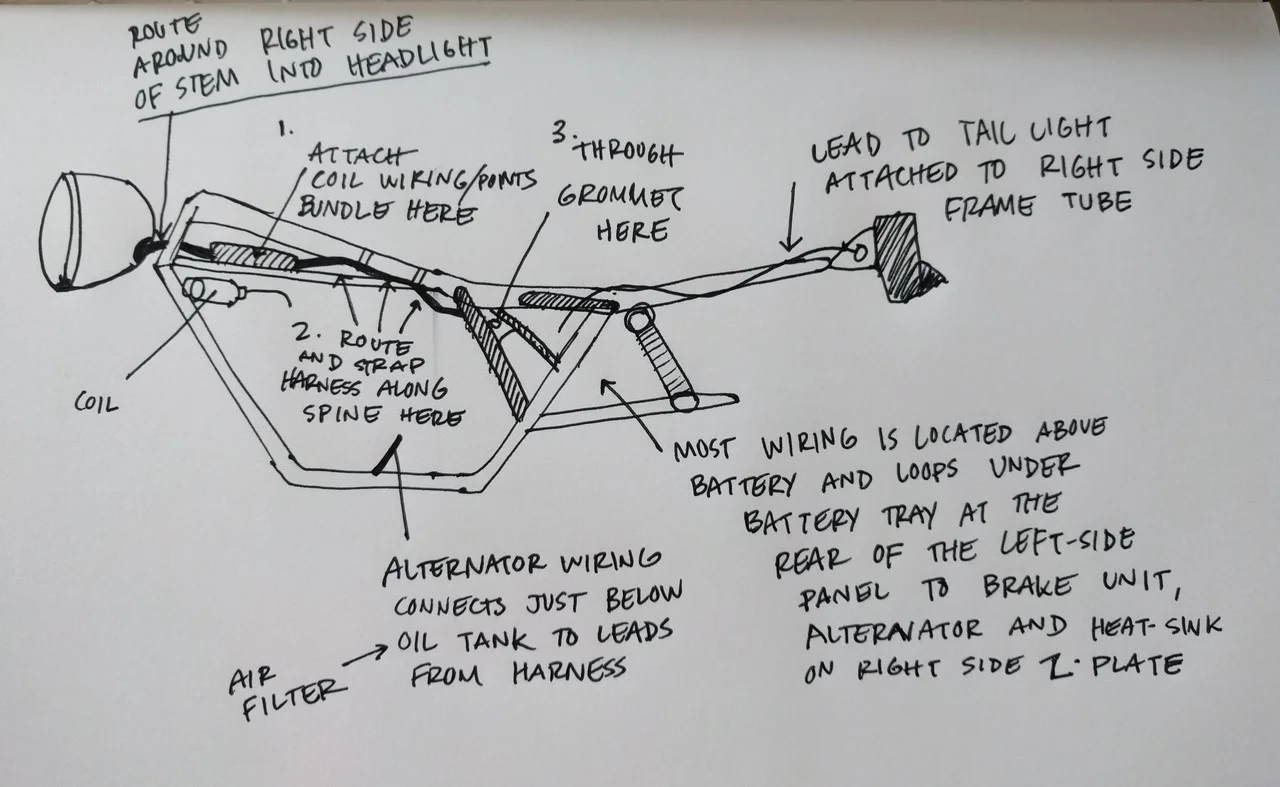 ROUTE
AROUND RIGHT SIDE
OF STEM INTO HEADLIGHT
1.
ATTACH
COIL WIRING/POINTS
BUNDLE HERE
3.
THROUGH
GROMMET
HERE
LEAD TO TAIL LIGHT
ATTACHED TO RIGHT SIDE
FRAME TUBE
COIL
2. ROUTE
AND STRAP
HARNESS ALONG
SPINE HERE
MOST WIRING IS LOCATED ABOVE
BATTERY AND LOOPS UNDER
BATTERY TRAY AT THE
REAR OF THE LEFT-SIDE
PANEL TO BRAKE UNIT,
ALTERNATOR AND HEAT-SINK
ON RIGHT SIDE Z-PLATE
ALTERNATOR WIRING
CONNECTS JUST BELOW
OIL TANK TO LEADS
FROM HARNESS
AIR
FILTER